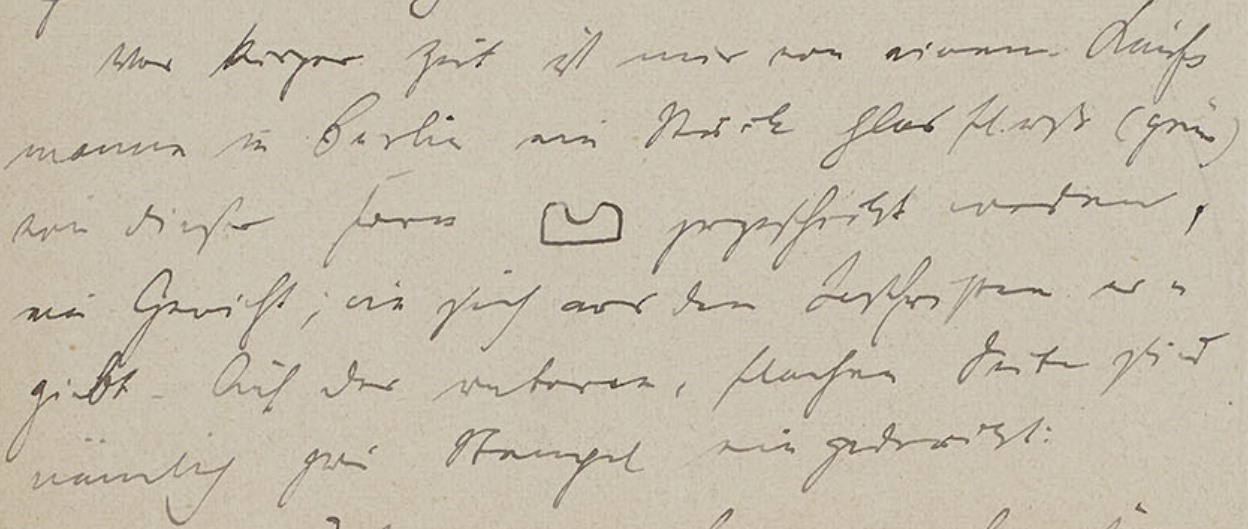 Vor kurzer Zeit ist mir von einem
manne in Berlin ein Stück Glasfluß (grün)
von dieser Form zugeschickt worden,
ein Gewicht, wie sich aus den Inschriften er=
giebt. Auf der unteren, flachen Seite sind
nämlich zwei Stempel eingedrückt: